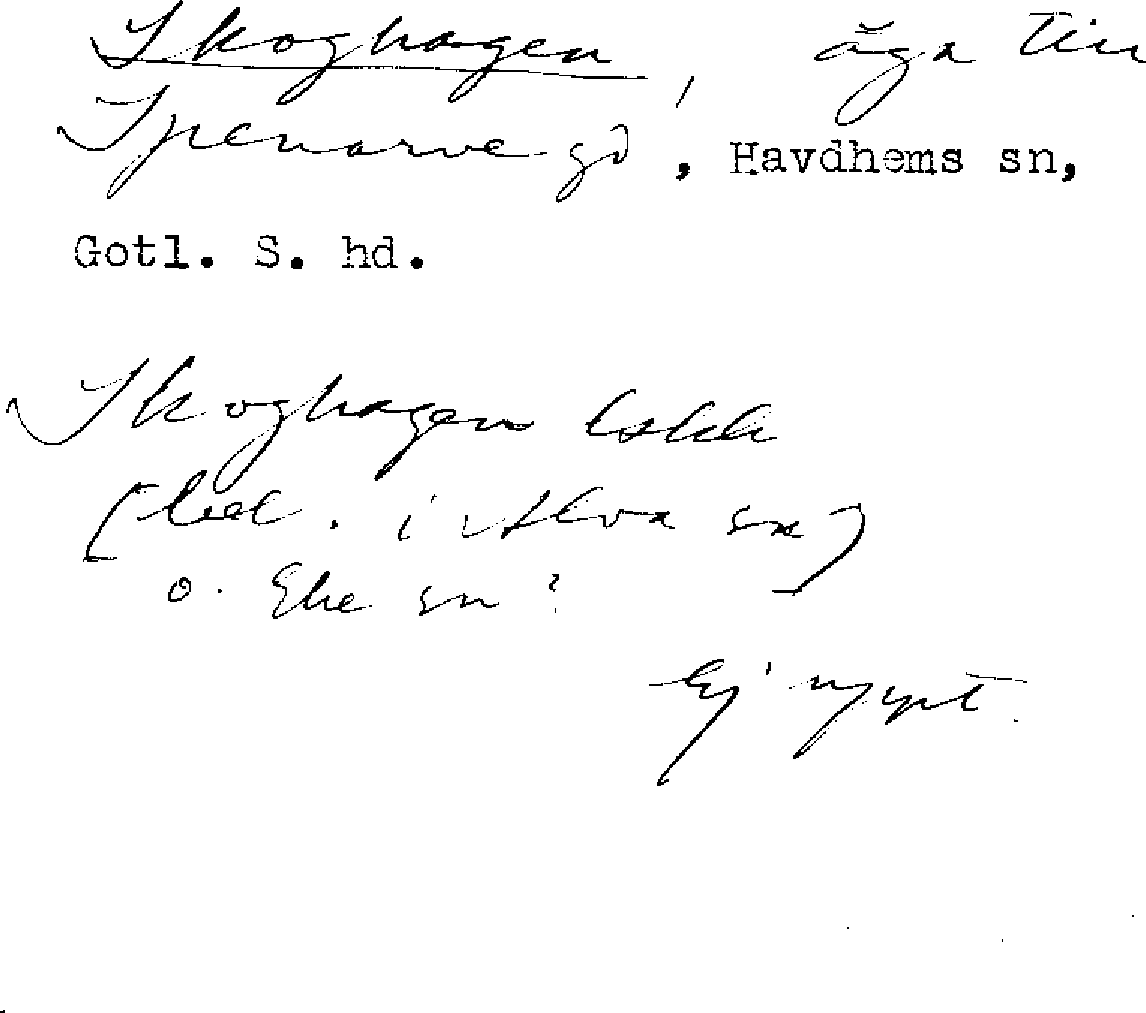 Skoghagen, äga till
Spenarve gd, Havdhems sn,
Gotl. S. hd.
Skoghagen Eskk
(bel. i Alva sn)
o. Eke sn?
Ej nypt.